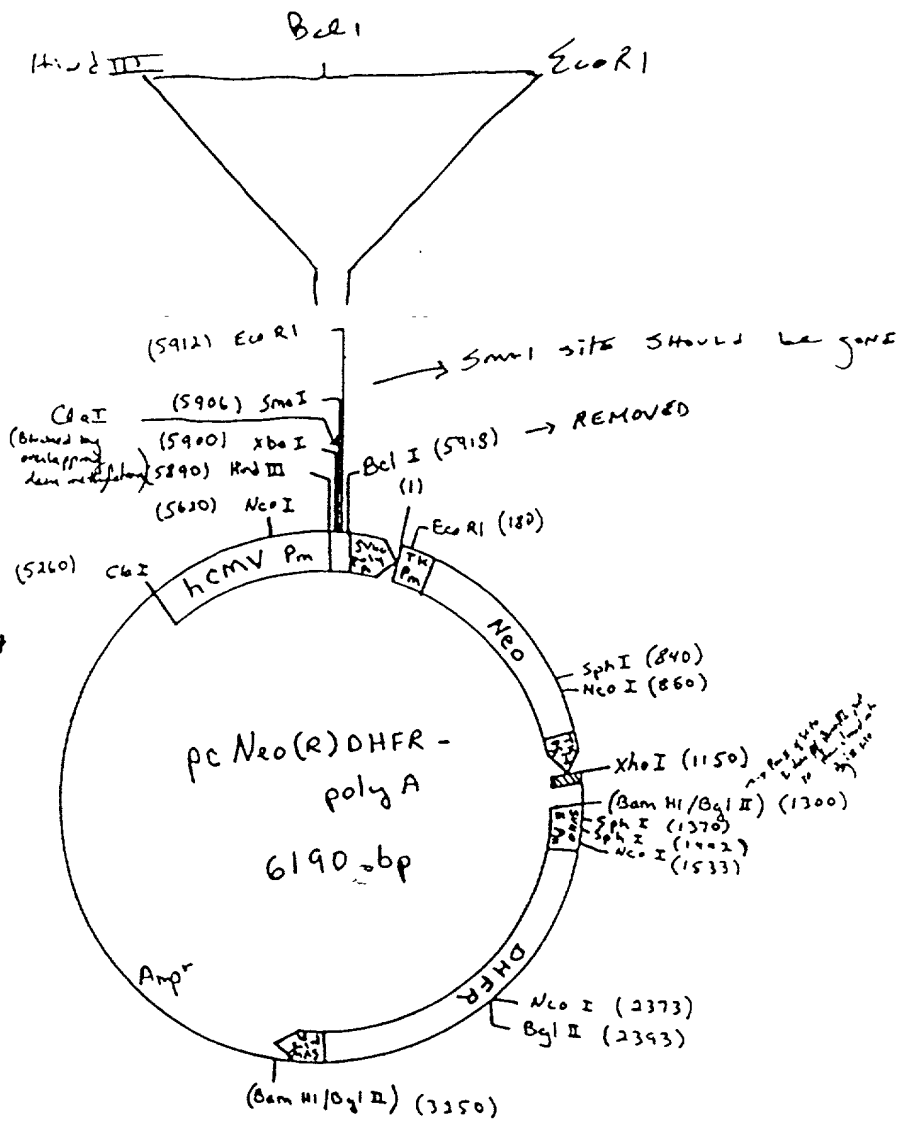 Bcl 1
Hind III
EcoR1
(5912) EcoR1
→ SmaI site SHOULD be gone
ClaI
(Blocked by overlapping dam methylation)
(5906) SmaI
(5900) XbaI
(5890) Hind III
Bcl I (5918) → REMOVED
(1)
(5620) NcoI
EcoR1 (180)
(5260) ClaI
hCMV Pm
SV40 poly A
TK Pm
Neo
SphI (840)
NcoI (860)
XhoI (1150)
(Bam H1/Bgl II) (1300)
SphI (1370)
SphI (1442)
NcoI (1533)
SV40
pc Neo(R) DHFR -
poly A
6190 bp
Ampʳ
DHFR
NcoI (2373)
Bgl II (2393)
(Bam H1/Bgl II) (3250)